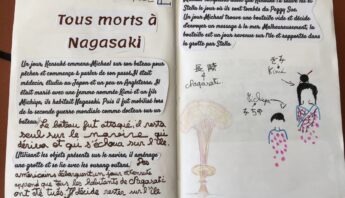 Tous morts à
Nagasaki
Un jour, Kensuké emmène Michael sur son bateau pour
pêcher et commence à parler de son passé. Il était
médecin, étudia au Japon et un peu en Angleterre. Il
était marié avec une femme nommée Kimi et un fils
Michiya, ils habitait Nagasaki. Puis il fut mobilisé lors
de la seconde guerre mondiale comme docteur sur un
bateau.
Le bateau fut attaqué, il resta
seul sur le navire qui
dériva et qui s'échoua sur l'île.
Utilisant les objets présents sur le navire, il aménage
une grotte et se lie avec les ourang outans. Des
américains débarquent un jour
apprend que tous les habitants de Nagasaki
ont été tués. Il décide rester sur l'île
Stella le jour où ils sont tombés du Peggy Sue.
Un jour, Michael trouve une bouteille vide et décide
d'envoyer un message à la mer. Malheureusement, la
bouteille est un jour revenue sur l'île et rapportée dans
la grotte par Stella.
長崎
Nagasaki
きみ
Kimi
Michiya
みちや